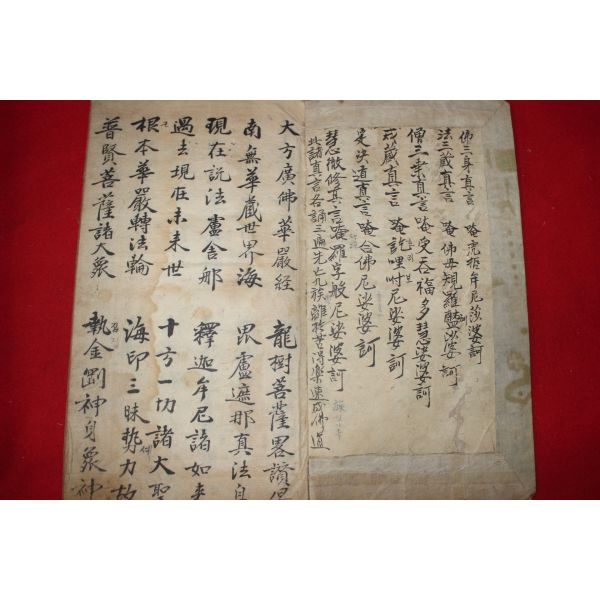 佛三身真言 唵虎批牟尼莎婆訶
法三藏真言 唵佛母規羅藍沙婆訶
僧三乘真言 唵受吞福多慧娑婆訶
戒藏真言 唵許哩吽尼娑婆訶
定決道真言 唵合佛尼娑婆訶
慧徹修真言 唵羅字般尼娑婆訶
此諸真言各誦三遍先亡九族離苦得樂速成佛道
大方廣佛華嚴經 龍樹菩薩畧讚
南無華藏世界海 毘盧遮那真法身
現在說法盧舍那 釋迦牟尼諸如來
過去現在未來世 十方一切諸大聖
根本華嚴轉法輪 海印三昧勢力故
普賢菩薩諸大衆 執金剛神身衆神